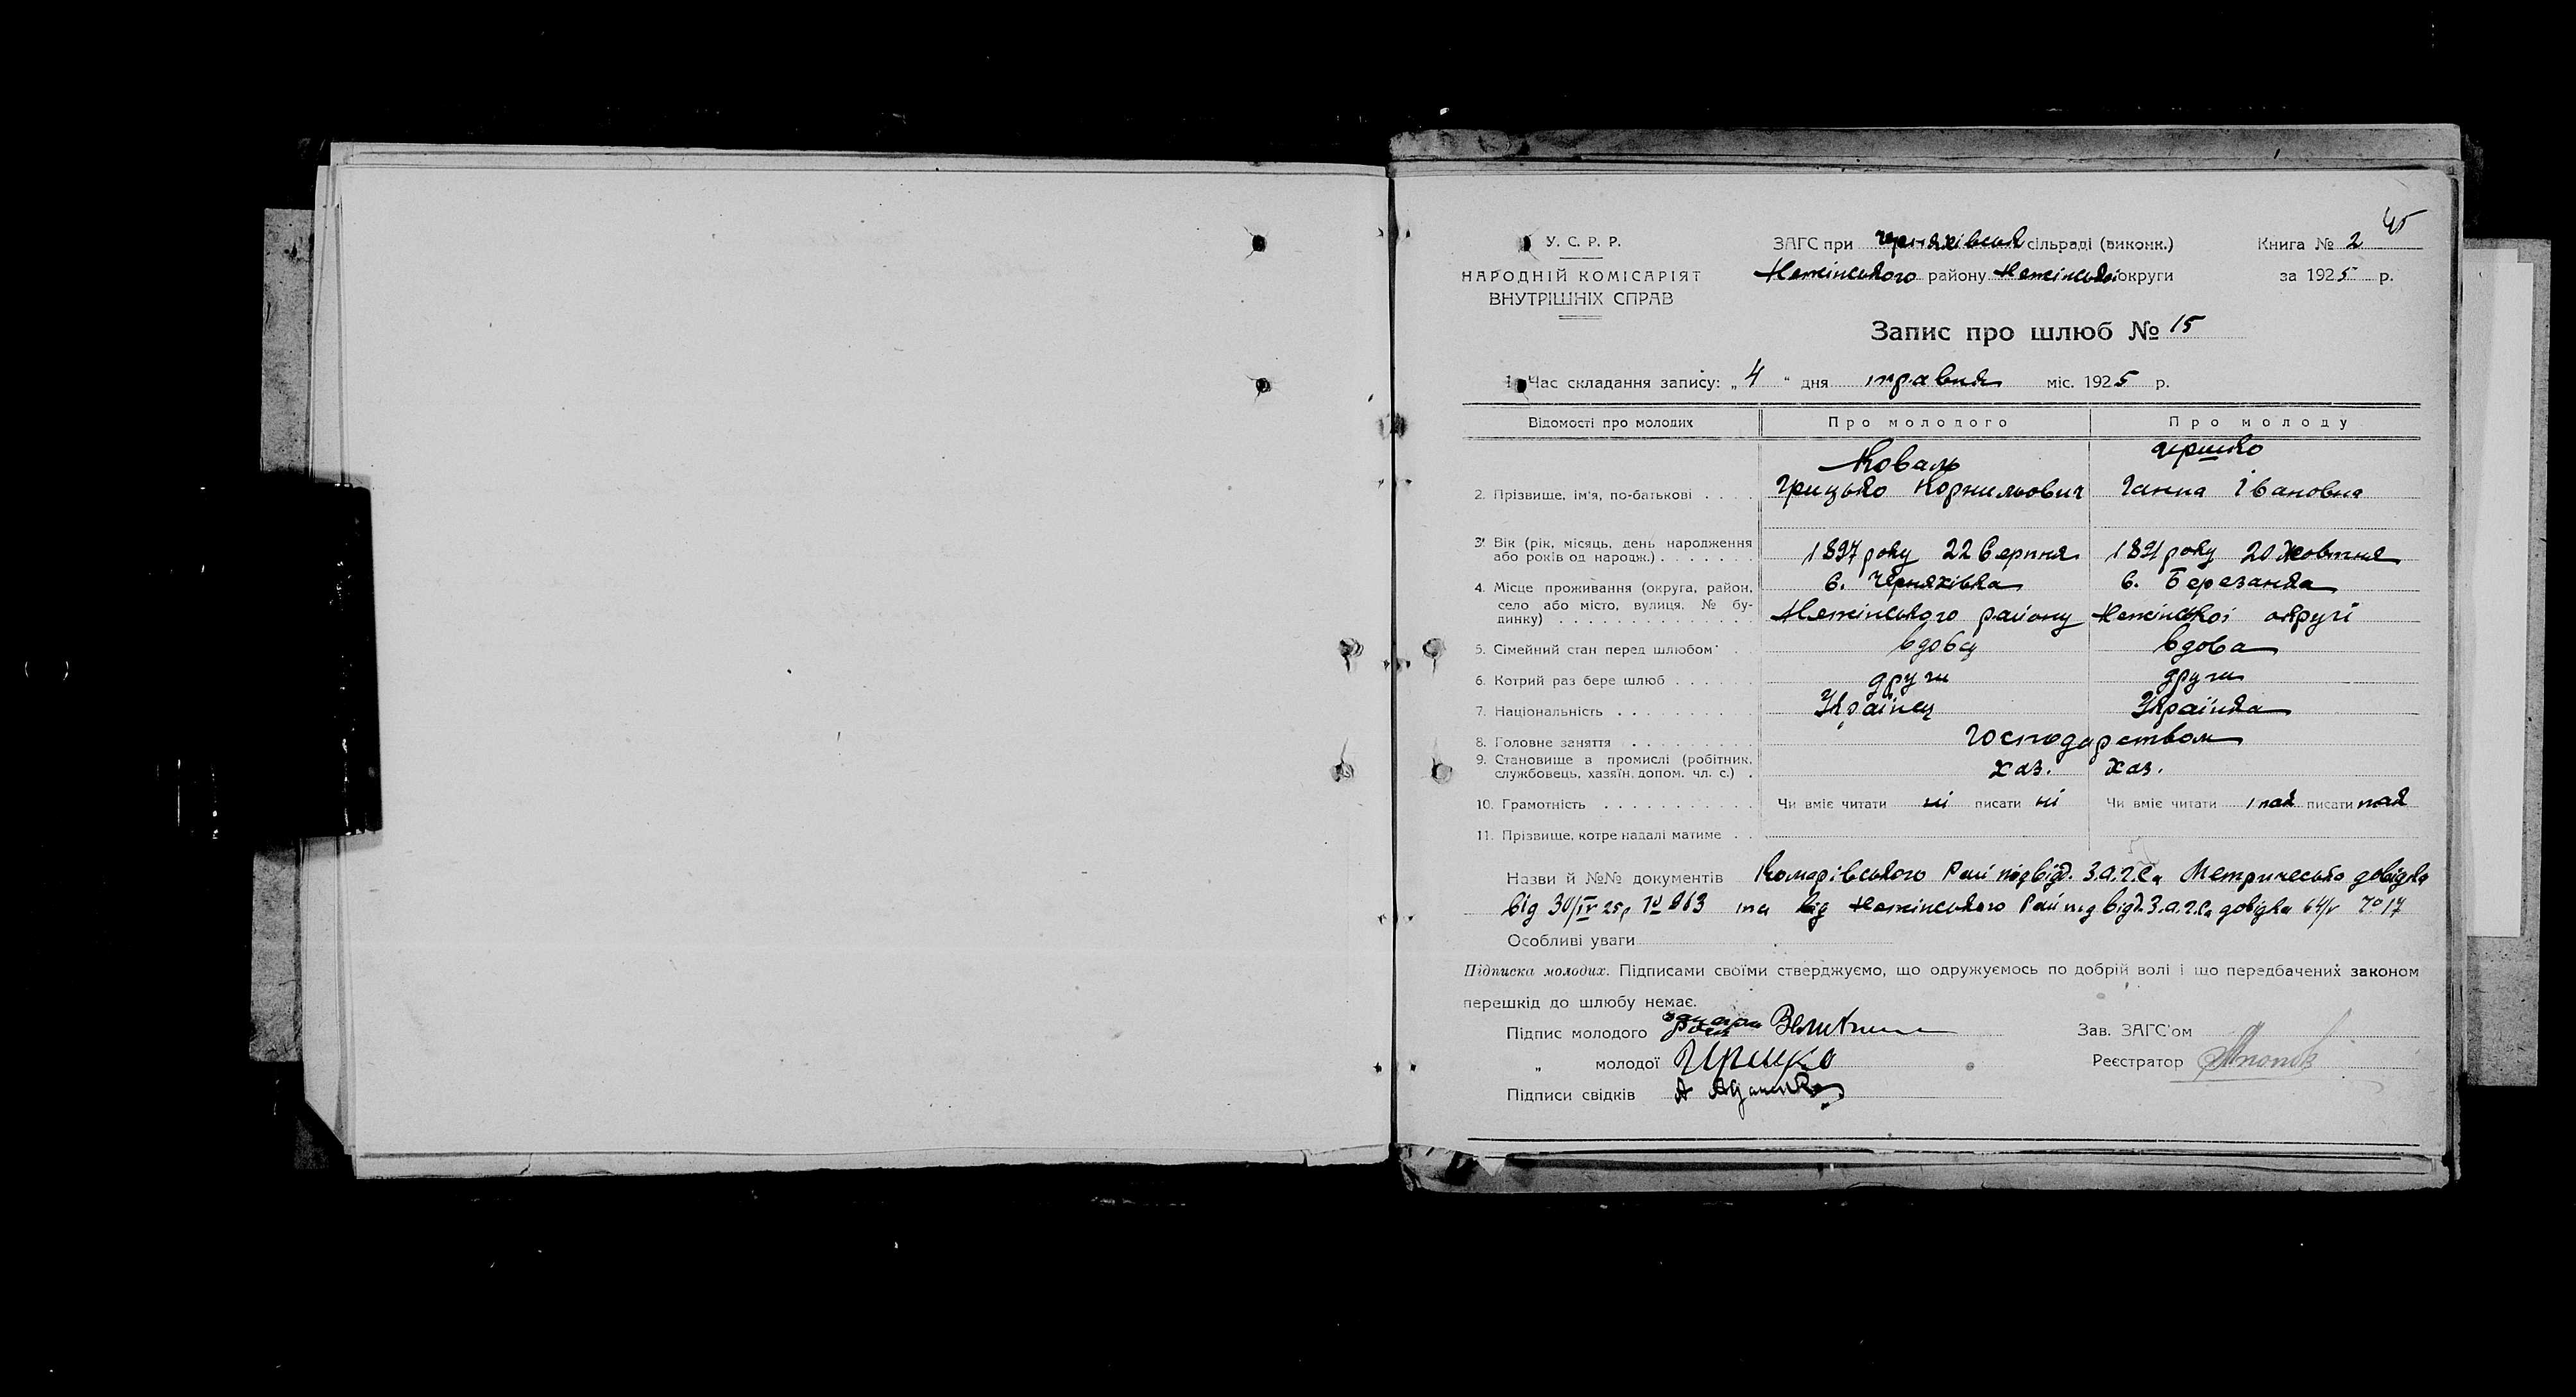 У. С. Р. Р.
НАРОДНІЙ КОМІСАРІЯТ
ВНУТРІШНІХ СПРАВ
ЗАГС при Черняхівській сільраді (виконк.)
Неженського району Неженської округи
Книга № 2
за 1925 р.
Запис про шлюб № 15
1. Час складання запису: „ 4 " дня травня міс. 1925 р.
Відомості про молодих Про молодого Про молоду
2. Прізвище, ім'я, по-батькові . . . . Коваль Гришко
Грицько Корнильович Ганна Івановна
3. Вік (рік, місяць, день народження
або років од народж.) . . . . . . . 1897 року 22 Серпня 1891 року 20 Жовтня
4. Місце проживання (округа, район, с. Черняхівка с. Березанка
село або місто, вулиця, № бу-
динку) . . . . . . . . . . . . . Неженського району Неженської округі
5. Сімейний стан перед шлюбом . вдовец вдова
6. Котрий раз бере шлюб . . . . . други други
7. Національність . . . . . . . . . Українец Українка
8. Головне заняття . . . . . . . . Господарством
9. Становище в промислі (робітник,
службовець, хазяїн, допом. чл. с.) . хаз. хаз.
10. Грамотність . . . . . . . . . . . Чи вміє читати ні писати ні Чи вміє читати так писати так
11. Прізвище, котре надалі матиме . .
Назви й №№ документів Комарівського Рай підвід. З.а.г.са Метрическа довідка
від 30/IV 25р № 863 та від Неженського Рай під відд. З.а.г.са довідка № 17
Особливі уваги
Підписка молодих. Підписами своїми стверджуємо, що одружуємось по добрій волі і що передбачених законом
перешкід до шлюбу немає.
Підпис молодого
„ молодої Гришко
Підписи свідків А
Зав. ЗАГС'ом
Реєстратор